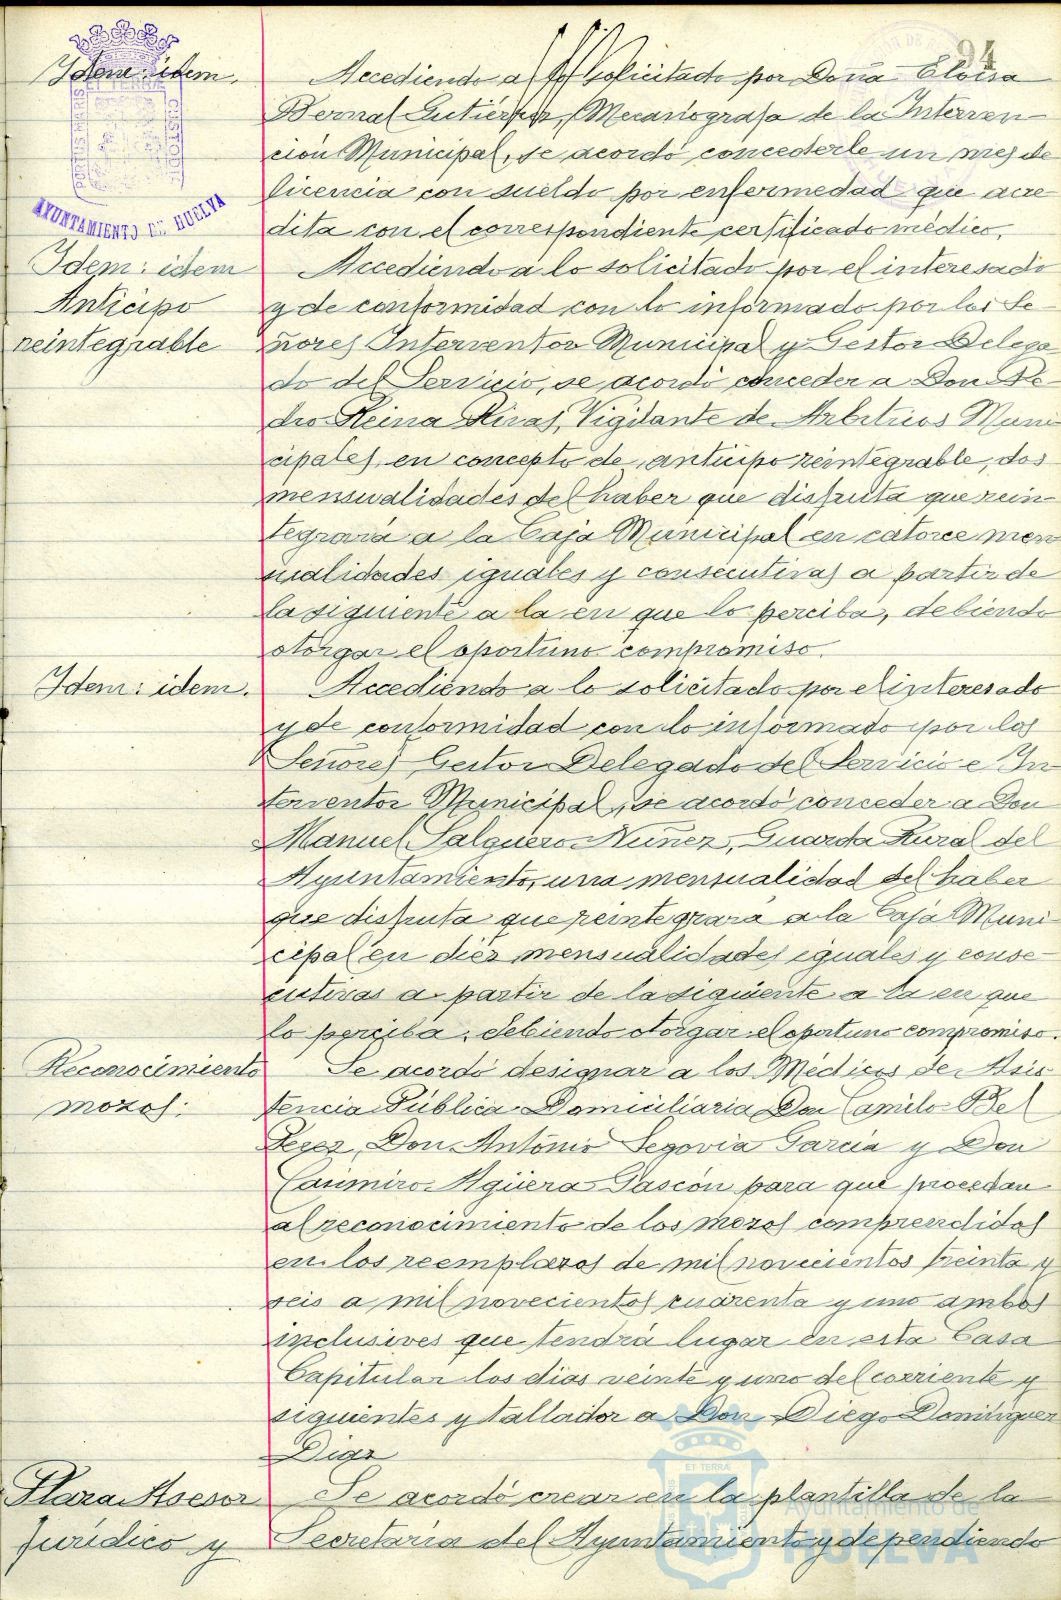 94
Idem: idem.
ET TERRAE
PORTUS MARIS
CUSTODIA
AYUNTAMIENTO DE HUELVA
Accediendo a lo solicitado por Doña Eloisa
Bernal Gutiérrez, Mecanógrafa de la Interven-
ción Municipal, se acordó concederle un mes de
licencia con sueldo por enfermedad que acre-
dita con el correspondiente certificado médico.
Idem: idem
Anticipo
reintegrable
Accediendo a lo solicitado por el interesado
y de conformidad con lo informado por los Se-
ñores Interventor Municipal y Gestor Delega-
do del Servicio, se acordó conceder a Don Pe-
dro Reina Rivas, Vigilante de Arbitrios Muni-
cipales, en concepto de anticipo reintegrable, dos
mensualidades del haber que disfruta que rein-
tegrará a la Caja Municipal en catorce men-
sualidades iguales y consecutivas a partir de
la siguiente a la en que lo perciba, debiendo
otorgar el oportuno compromiso.
Idem: idem.
Accediendo a lo solicitado por el interesado
y de conformidad con lo informado por los
Señores Gestor Delegado del Servicio e In-
terventor Municipal, se acordó conceder a Don
Manuel Salguero Nuñez, Guarda Rural del
Ayuntamiento, una mensualidad del haber
que disfruta que reintegrará a la Caja Muni-
cipal en diez mensualidades iguales y conse-
cutivas a partir de la siguiente a la en que
lo perciba, debiendo otorgar el oportuno compromiso.
Reconocimiento
mozos:
Se acordó designar a los Médicos de Asis-
tencia Pública Domiciliaria Don Camilo Bel
Perez, Don Antonio Segovia Garcia y Don
Casimiro Agüera Pascón para que procedan
al reconocimiento de los mozos comprendidos
en los reemplazos de mil novecientos treinta y
seis a mil novecientos cuarenta y uno ambos
inclusives que tendrá lugar en esta Casa
Capitular los dias veinte y uno del corriente y
siguientes y tallador a Don Diego Dominguez
Diaz
Plaza Asesor
Jurídico y
Se acordó crear en la plantilla de la
Secretaría del Ayuntamiento y dependiendo
ET TERRAE
Ayuntamiento de
HUELVA